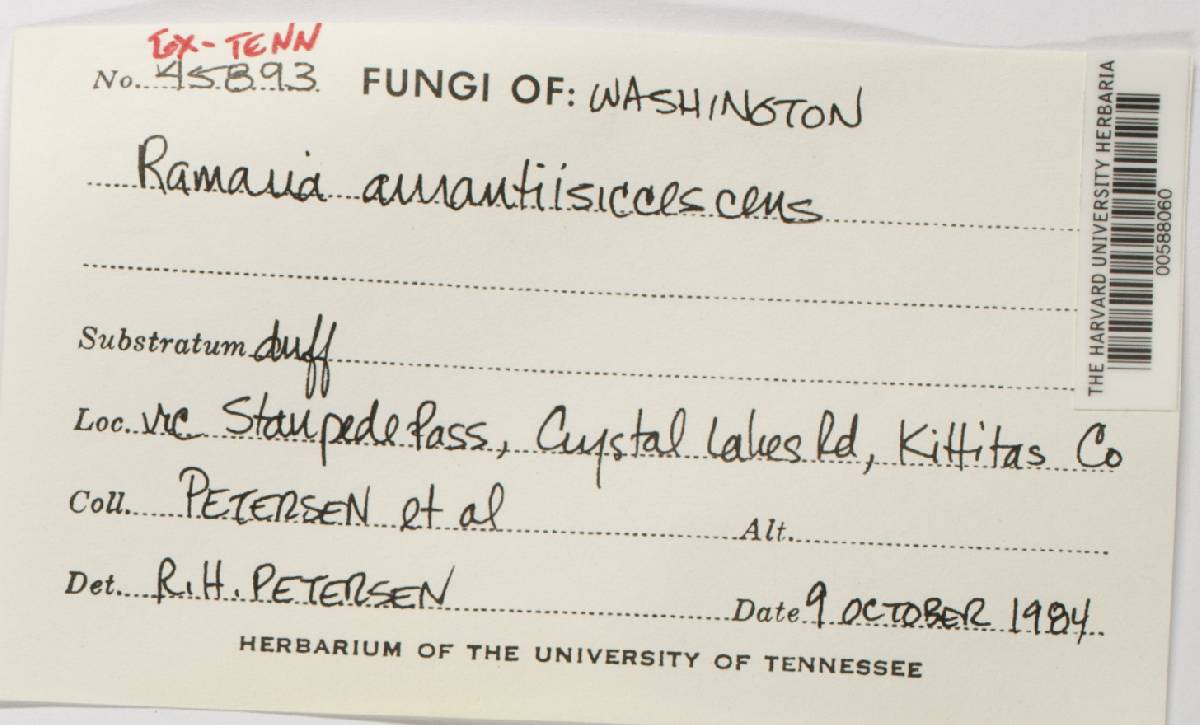 Ex-TENN
No. 45893 FUNGI OF: WASHINGTON
Ramaria aurantiisiccescens
Substratum duff
Loc. vic Stampede Pass, Crystal Lakes Rd, Kittitas Co
Coll. PETERSEN et al Alt.
Det. R.H. PETERSEN Date 9 OCTOBER 1984
HERBARIUM OF THE UNIVERSITY OF TENNESSEE
THE HARVARD UNIVERSITY HERBARIA
00588060